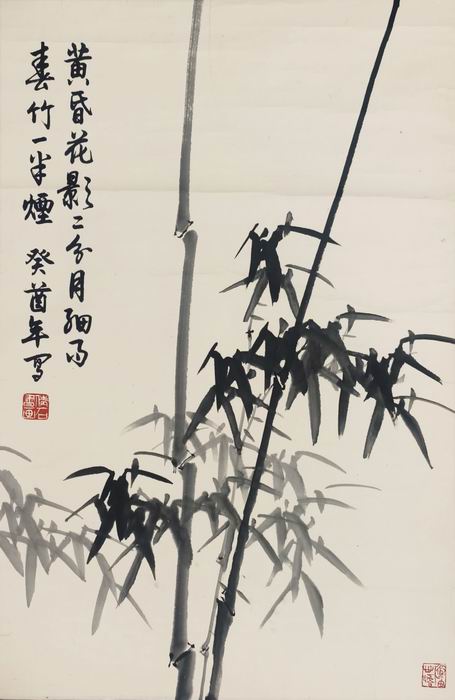 黄昏花影二分月細雨
春竹一半煙 癸酉年写